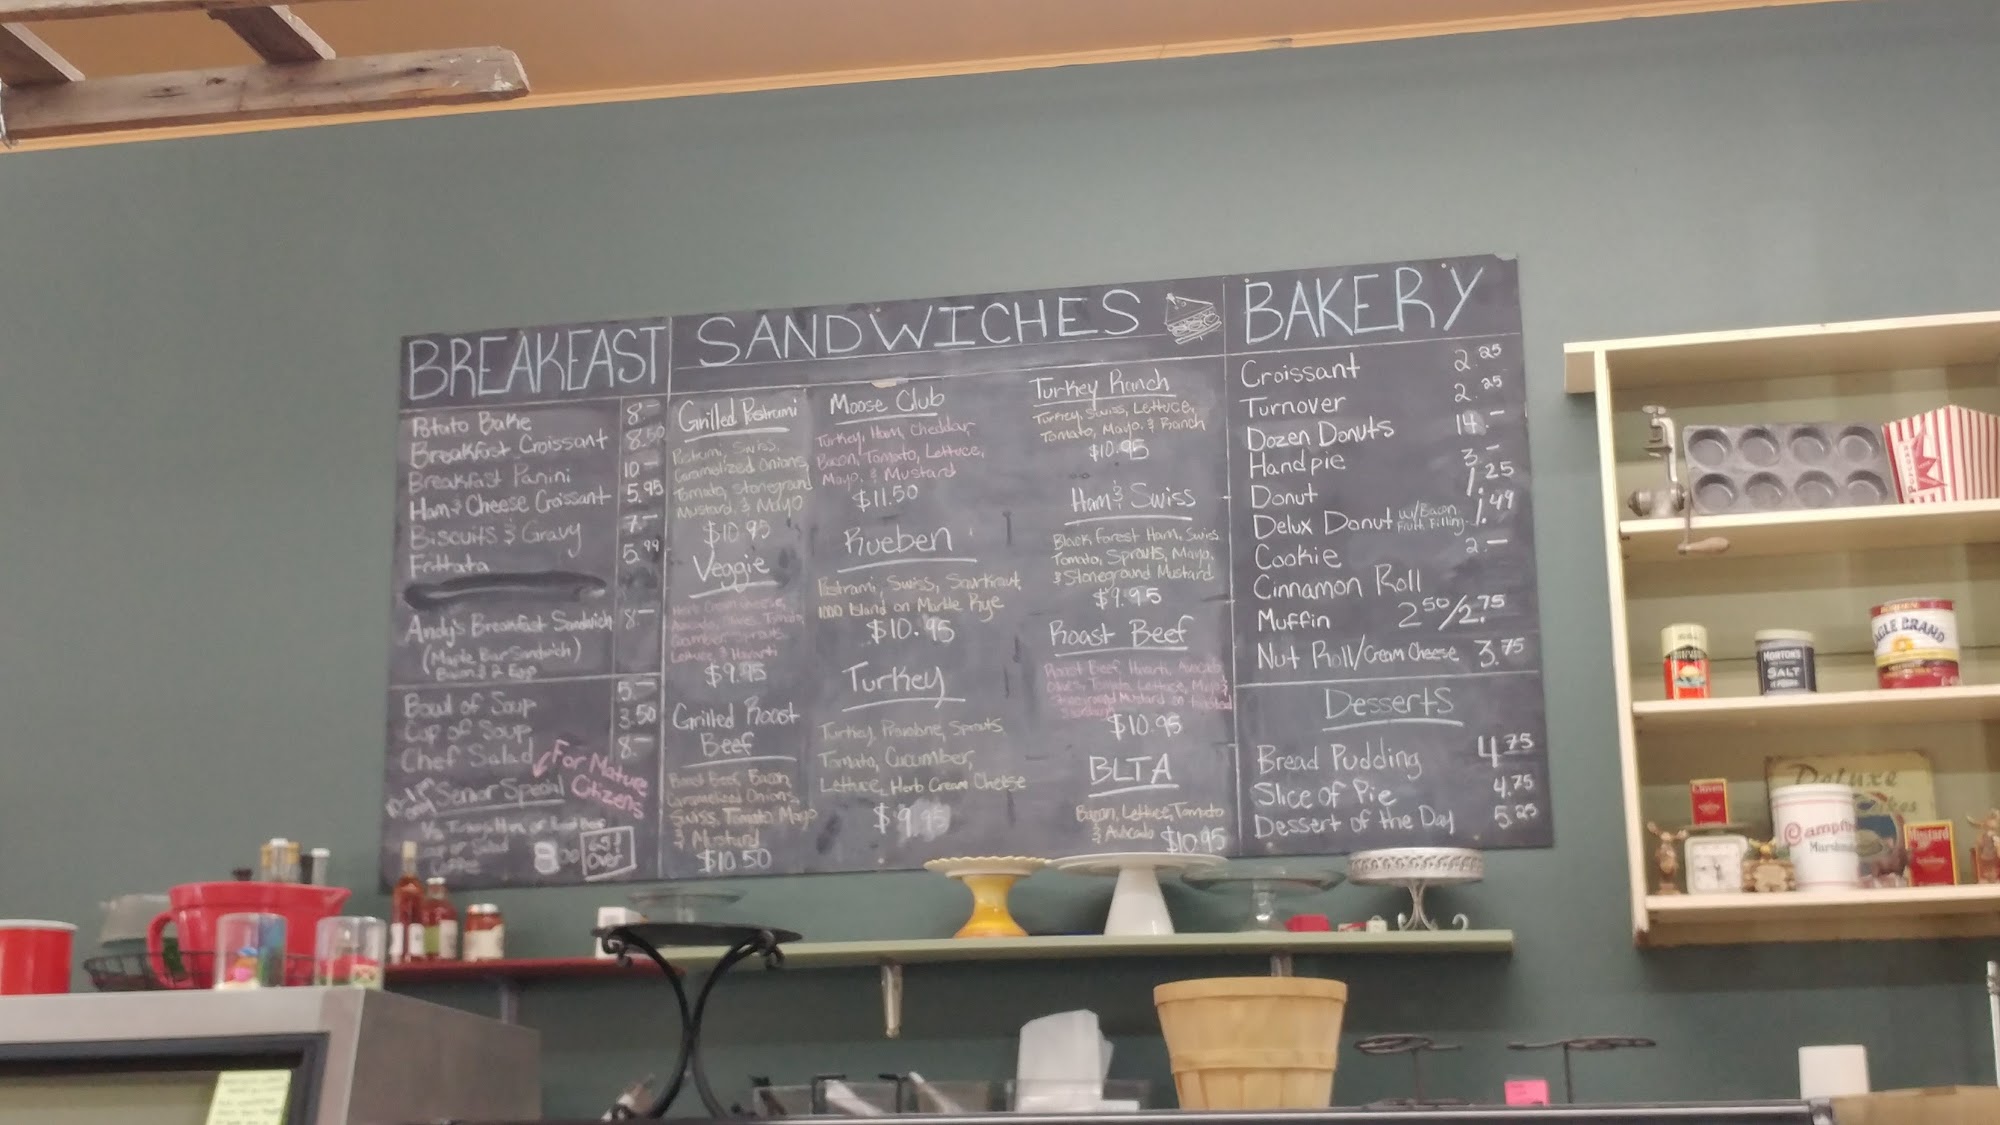 BREAKFAST
Potato Bake 8.—
Breakfast Croissant 8.50
Breakfast Panini 10—
Ham & Cheese Croissant 5.95
Biscuits & Gravy 7.—
Frittata 5.99
Andy's Breakfast Sandwich 8.—
(Maple Bar Sandwich)
Bacon & 2 Egg
Bowl of Soup 5.—
Cup of Soup 3.50
Chef Salad 8.—
For Mature
Citizens
Senior Special
Coffee
8.00
65 &
Over
SANDWICHES
Grilled Pastrami
Pastrami, Swiss,
Caramelized Onions,
Tomato, Stoneground
Mustard, & Mayo
$10.95
Veggie
Herb Cream Cheese,
Avocado, Olives, Tomato,
Cucumber, Sprouts
Lettuce & Havarti
$9.95
Grilled Roast
Beef
Roast Beef, Bacon,
Caramelized Onions,
Swiss, Tomato Mayo
& Mustard
$10.50
Moose Club
Turkey, Ham, Cheddar,
Bacon, Tomato, Lettuce,
Mayo, & Mustard
$11.50
Rueben
Pastrami, Swiss, Saurkraut,
1000 Island on Marble Rye
$10.95
Turkey
Turkey, Provolone, Sprouts
Tomato, Cucumber,
Lettuce, Herb Cream Cheese
$9.95
Turkey Ranch
Turkey, Swiss, Lettuce,
Tomato, Mayo, & Ranch
$10.95
Ham & Swiss
Black Forest Ham, Swiss
Tomato, Sprouts, Mayo,
& Stoneground Mustard
$9.95
Roast Beef
Roast Beef, Havarti, Avocado,
Olives, Tomato, Lettuce, Mayo &
Stoneground Mustard on
$10.95
BLTA
Bacon, Lettuce, Tomato
& Avocado $10.95
BAKERY
Croissant 2.25
Turnover 2.25
Dozen Donuts 14.—
Handpie 3.—
Donut 1.25
Delux Donut w/Bacon Fruit Filling 1.49
Cookie 2.—
Cinnamon Roll
Muffin 2.50/2.75
Nut Roll/Cream Cheese 3.75
Desserts
Bread Pudding 4.75
Slice of Pie 4.75
Dessert of the Day 5.25
Popcorn
MORTON'S
SALT
BORDEN
EAGLE BRAND
Deluxe
Campfire
Marshmallows
Mustard